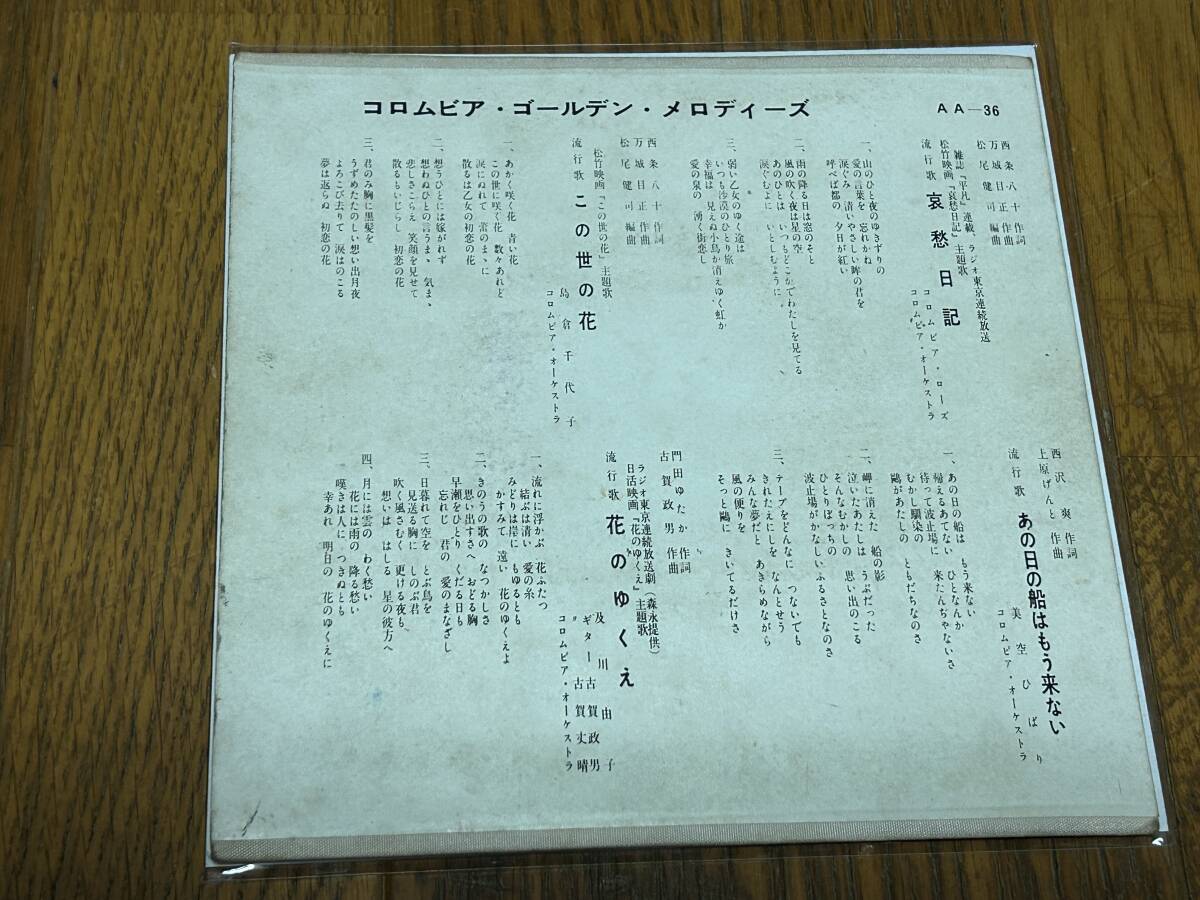 コロムビア・ゴールデン・メロディーズ
AA—36
西条八十作詞
万城目正作曲
松尾健司編曲
雑誌『平凡』連載、ラジオ東京連続放送
松竹映画『哀愁日記』主題歌
流行歌 哀愁日記
コロムビア・ローズ
コロムビア・オーケストラ
一、山のひと夜のゆきずりの
愛の言葉を 忘れかね
涙ぐみ 清いやさしい眸の君を
呼べば都の 夕日が紅い
二、雨の降る日は窓のそと
風の吹く夜は星の空
あのひとは いつもどこかでわたしを見てる
涙ぐむよに いとしむように
三、弱い乙女のゆく途は
いつも沙漠のひとり旅
幸福は 見えぬ小鳥か消えゆく虹か
愛の泉の 湧く街恋し
西条八十作詞
万城目正作曲
松尾健司編曲
松竹映画『この世の花』主題歌
流行歌 この世の花
島倉千代子
コロムビア・オーケストラ
一、あかく咲く花 青い花
この世に咲く花 数々あれど
涙にぬれて 蕾のまゝに
散るは乙女の初恋の花
二、想うひとには嫁がれず
想わぬひとの言うまゝ 気まゝ
悲しさこらえ 笑顔を見せて
散るもいじらし 初恋の花
三、君のみ胸に黒髪を
うずめたたのしい想い出月夜
よろこび去りて 涙はのこる
夢は返らぬ 初恋の花
西沢爽作詞
上原げんと作曲
流行歌 あの日の船はもう来ない
美空ひばり
コロムビア・オーケストラ
一、あの日の船は もう来ない
帰えるあてない ひとなんか
待って波止場に 来たんぢゃないさ
むかし馴染の ともだちなのさ
鷗があたしの
二、岬に消えた 船の影
泣いたあたしは うぶだった
そんなむかしの 思い出のこる
ひとりぼっちの
波止場がかなしいふるさとなのさ
三、テープをどんなに つないでも
きれたえにしを なんとせう
みんな夢だと あきらめながら
風の便りを
そっと鷗に きいてるだけさ
門田ゆたか作詞
古賀政男作曲
ラジオ東京連続放送劇(森永提供)
日活映画『花のゆくえ』主題歌
流行歌 花のゆくえ
及川由子
ギター古賀政男
〃 古賀丈晴
コロムビア・オーケストラ
一、流れに浮かぶ 花ふたつ
結ぶは清い 愛の糸
みどりは崖に もゆるとも
かすみて遠い 花のゆくえよ
二、きのうの歌の なつかしさ
思い出すさへ おどる胸
早瀬をひとり くだる日も
忘れじ 君の 愛のまなざし
三、日暮れて空を とぶ鳥を
見送る胸に しのぶ君
吹く風さむく 更ける夜も
想いは はしる 星の彼方へ
四、月には雲の わく愁い
花には雨の 降る愁い
嘆きは人に つきぬとも
幸あれ 明日の 花のゆくえに